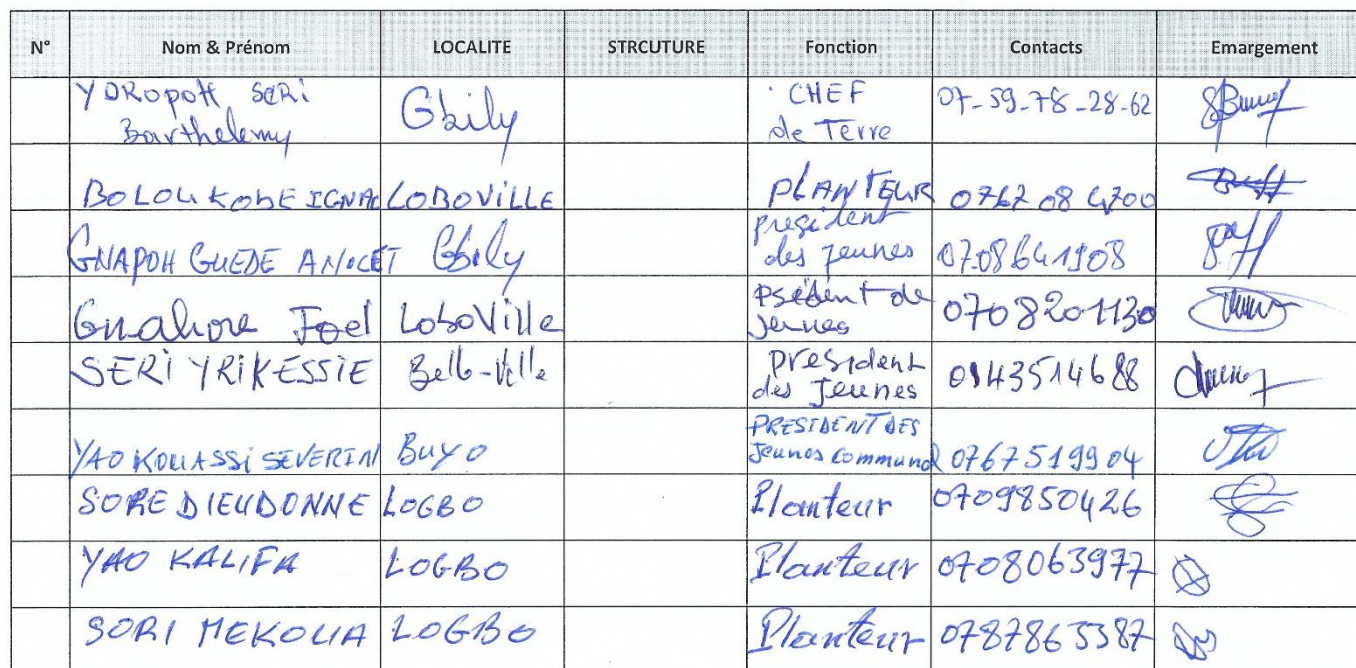 N° Nom & Prénom LOCALITE STRCUTURE Fonction Contacts Emargement
YOROPOH SERI Barthelemy Gbily CHEF de Terre 07-59-78-28-62
BOLOU KOBE IGNAC LOBOVILLE PLANTEUR 0767084700
GNAPOH GUEDE ANICET Gbily president des jeunes 0708641908
Gnahore Joel LoboVille Psedent de Jeunes 0708201130
SERI YRIKESSIE Belle-Ville president des Jeunes 0143514688
YAO KOUASSI SEVERIN BUYO PRESIDENT DES Jeunes Communal 0767519904
SORE DIEUDONNE LOGBO Planteur 0709850426
YAO KALIFA LOGBO Planteur 0708063977
SORI MEKOUA LOGBO Planteur 0787865387